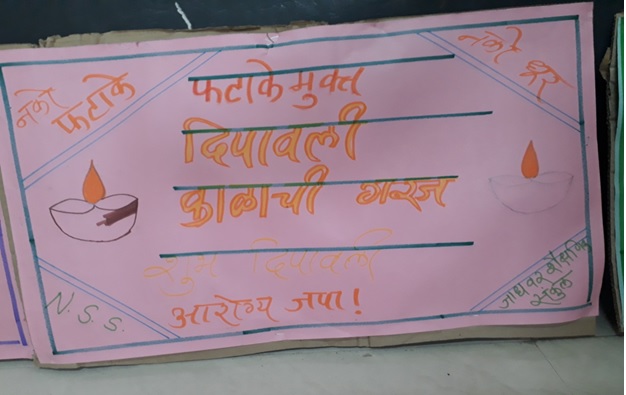 नको
फटाके
नको धूर
फटाके मुक्त
दिपावली
काळाची गरज
शुभ दिपावली
आरोग्य जपा!
N.S.S.
जाधवर शैक्षणिक
संकुल